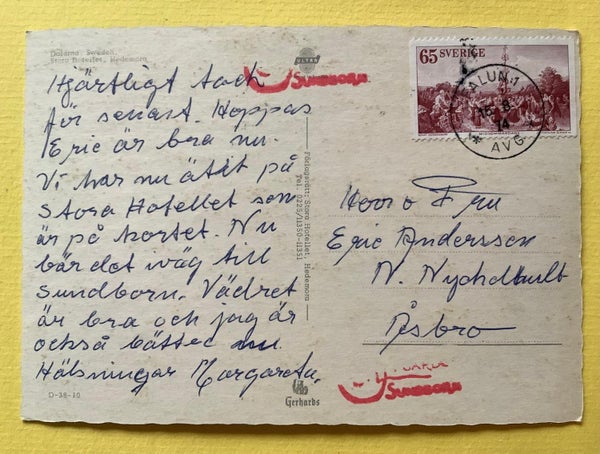 Dalarna, Sweden.
Stora Hotellet, Hedemora.
Hjärtligt tack
för senast. Hoppas
Eric är bra nu.
Vi har nu ätit på
Stora Hotellet som
är på kortet. Nu
bär det iväg till
Sundborn. Vädret
är bra och jag är
också bättre nu.
Hälsningar Margareta.
D-38-10
ULTRA
SUNDBORN
Förlagsrätt: Stora Hotellet, Hedemora
Tel. 0225/11350-11351
Gerhards
65 SVERIGE
FALUN 1
16.8.
74
* AVG
Herr o Fru
Eric Andersson
N. Nychelhult
Åsbro
SUNDBORN